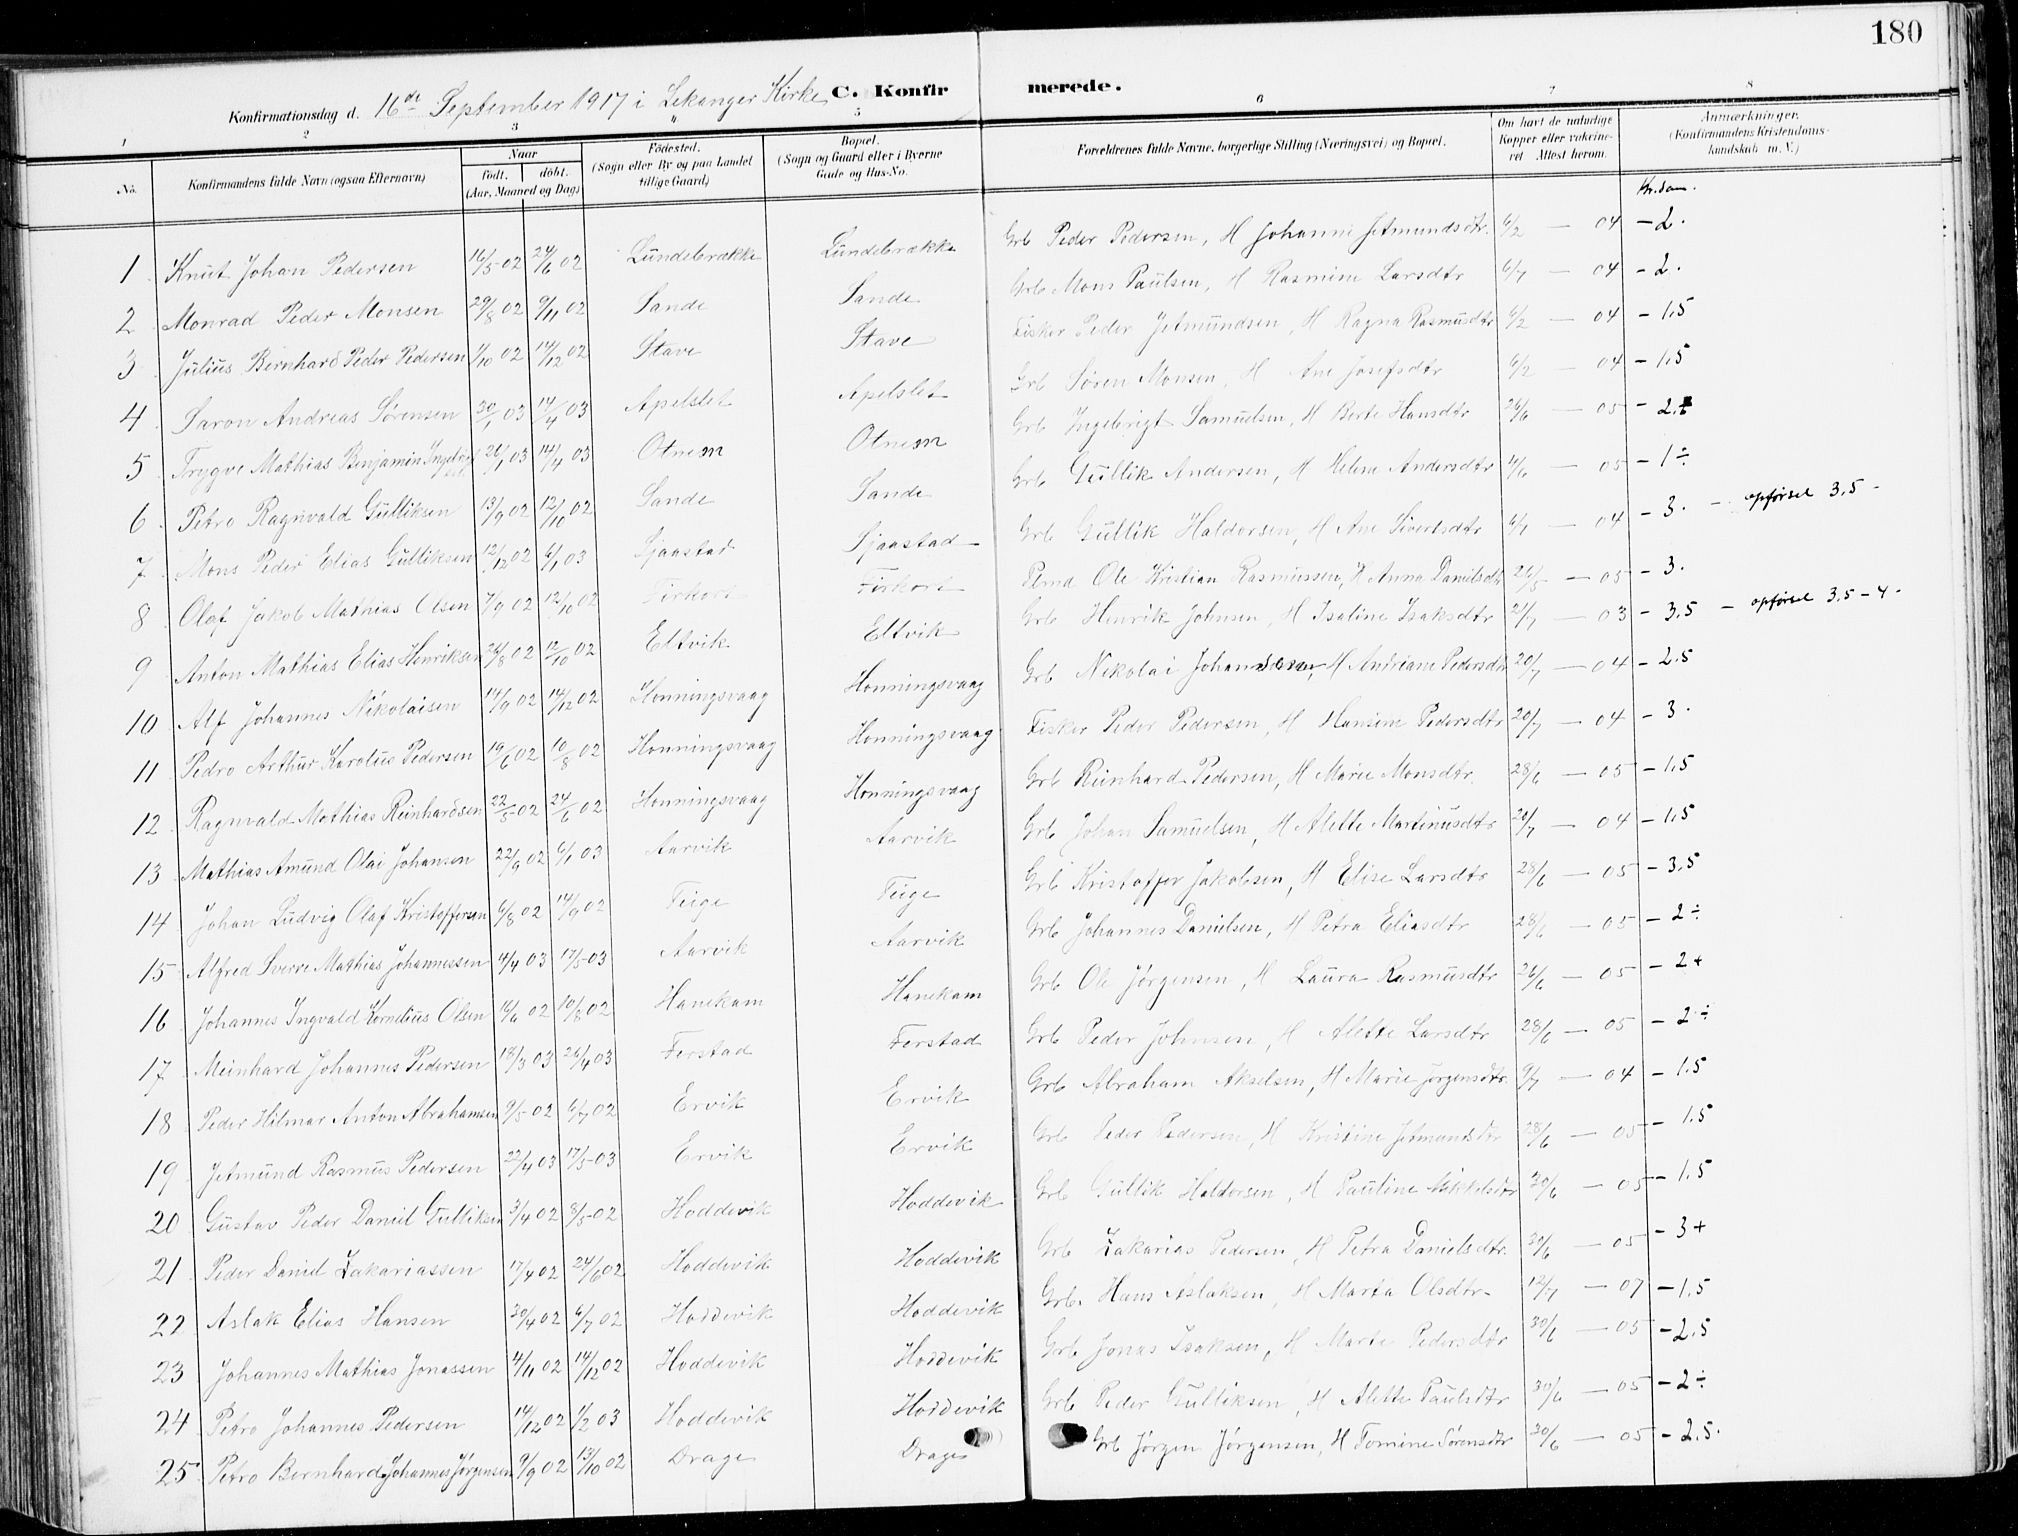 180
Konfirmationsdag d. 16de September 1917 i Lekanger Kirke C. Konfirmerede.
1 2 3 4 5 6 7 8
No. Konfirmandens fulde Navn (ogsaa Efternavn) Naar født. døbt. (Aar, Maaned og Dag) Fødested. (Sogn eller By og paa Landet tillige Gaard) Bopæl. (Sogn og Gaard eller i Byerne Gade og Hus-No. Forældrenes fulde Navne, borgerlige Stilling (Næringsvei) og Bopæl. Om havt de naturlige Kopper eller vakcineret. Attest herom. Anmærkninger. (Konfirmandens Kristendomskundskab m. V.)
Kr.dom.
1 Knut Johan Pedersen 16/5 02 24/6 02 Lundebrække Lundebrække Grb Peder Pedersen, H Johanne Jetmundsdtr. 6/2 — 04 - 2.
2 Monrad Peder Monsen 29/8 02 9/11 02 Sande Sande Grb Mons Paulsen, H Rasmine Larsdtr 6/7 — 04 - 2.
3 Julius Bernhard Peder Pedersen 1/10 02 14/12 02 Stave Stave Fisker Peder Jetmundsen, H Ragna Rasmusdtr 6/2 — 04 - 1,5
4 Saron Andreas Sørensen 30/1 03 14/4 03 Apelset Apelset Grb Søren Monsen, H Ane Josefsdtr 6/2 — 04 - 1,5
5 Trygve Mathias Benjamin 26/1 03 14/4 03 Otnem Otnem Grb Ingebrigt Samuelsen, H Berte Hansdtr 26/6 — 05 - 2.
6 Petro Ragnvald Gulliksen 13/9 02 12/10 02 Sande Sande Grb Gullik Andersen, H Helene Andersdtr 4/6 — 05 - 1÷
7 Mons Peder Elias Gulliksen 12/12 02 6/1 03 Sjaastad Sjaastad Grb Gullik Haldorsen, H Ane Sivertsdtr 6/7 — 04 - 3. - opførsel 3.5 -
8 Olaf Jakob Mathias Olsen 7/9 02 12/10 02 Firkort Firkort Plmd Ole Kristian Rasmussen, H Anna Danielsdtr 26/5 — 05 - 3.
9 Anton Mathias Elias Henriksen 24/8 02 12/10 02 Eltvik Eltvik Grb Henrik Johnsen, H Isaline Isaksdtr 21/7 — 03 - 3.5 - opførsel 3.5-4.
10 Alf Johannes Nikolaisen 14/9 02 14/12 02 Honningsvaag Honningsvaag Grb Nikolai Johannesen, H Andriane Pedersdtr 20/7 — 04 - 2.5
11 Pedro Arthur Karolius Pedersen 19/6 02 10/8 02 Honningsvaag Honningsvaag Fisker Peder Pedersen, H Hansine Pedersdtr 20/7 — 04 - 3.
12 Ragnvald Mathias Reinhardsen 22/5 02 24/6 02 Honningsvaag Honningsvaag Grb Reinhard Pedersen, H Marie Monsdtr. 28/6 — 05 - 1.5
13 Mathias Amund Olai Johansen 22/9 02 6/1 03 Aarvik Aarvik Grb Johan Samuelsen, H Alette Martinusdtr 20/7 — 04 - 1.5
14 Johan Ludvig Olaf Kristoffersen 6/8 02 14/9 02 Teige Teige Grb Kristoffer Jakobsen, H Elise Larsdtr 28/6 — 05 - 3,5
15 Alfred Sverre Mathias Johannessen 4/4 03 17/5 03 Aarvik Aarvik Grb Johannes Danielsen, H Petra Eliasdtr 28/6 — 05 - 2÷
16 Johannes Ingvald Kornelius Olsen 16/6 02 10/8 02 Hanekam Hanekam Grb Ole Jørgensen, H Laura Rasmusdtr 26/6 — 05 - 2+
17 Meinhard Johannes Pedersen 18/3 03 26/4 03 Ferstad Ferstad Grb Peder Johnsen, H Alette Larsdtr 28/6 — 05 - 2÷
18 Peder Hilmar Anton Abrahamsen 9/5 02 6/7 02 Ervik Ervik Grb Abraham Akselsen, H Marie Jørgensdtr. 9/7 — 04 - 1.5
19 Jetmund Rasmus Pedersen 22/4 03 17/5 03 Ervik Ervik Grb Peder Pedersen, H Kristine Jetmundsdtr 28/6 — 05 - 1.5
20 Gustav Peder Daniel Gulliksen 3/4 02 8/5 02 Hoddevik Hoddevik Grb Gullik Haldorsen, H Pauline Mikkelsdtr 30/6 — 05 - 1.5
21 Peder Daniel Zakariassen 17/4 02 24/6 02 Hoddevik Hoddevik Grb Zakarias Pedersen, H Petra Danielsdtr. 30/6 — 05 - 3+
22 Aslak Elias Hansen 30/4 02 6/7 02 Hoddevik Hoddevik Grb. Hans Aslaksen, H Marta Olsdtr. 12/7 — 07 - 1.5
23 Johannes Mathias Jonassen 4/11 02 14/12 02 Hoddevik Hoddevik Grb Jonas Isaksen, H Marte Pedersdtr 30/6 — 05 - 2.5
24 Petro Johannes Pedersen 14/12 02 1/2 03 Hoddevik Hoddevik Grb Peder Gulliksen, H Alette Paulsdtr 30/6 — 05 - 2÷
25 Petro Bernhard Johannes Jørgensen 9/9 02 13/10 02 Drage Drage Grb Jørgen Jørgensen, H Tomine Sørensdtr 30/6 — 05 - 2.5.